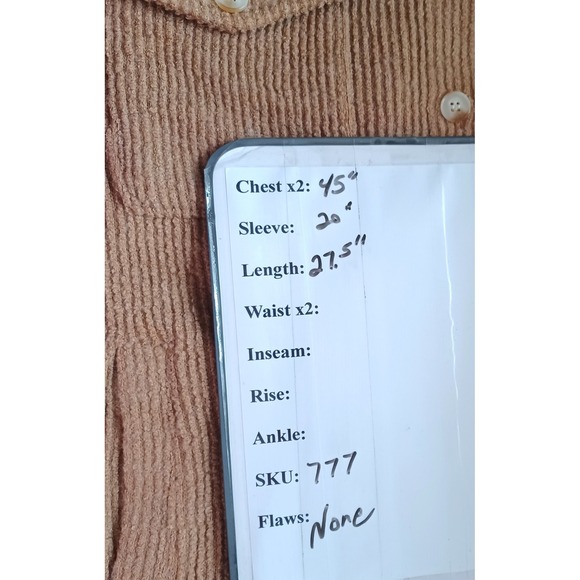 Chest x2: 45"
Sleeve: 20"
Length: 27.5"
Waist x2:
Inseam:
Rise:
Ankle:
SKU: 777
Flaws: None